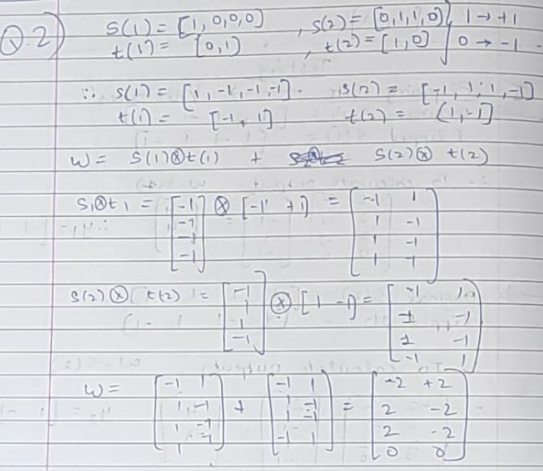 Q.2) s(1) = [1,0,0,0] , s(2) = [0,1,1,0] 1 → +1
t(1) = [0,1] , t(2) = [1,0] 0 → -1
∴ s(1) = [1,-1,-1,-1]. s(2) = [-1, 1, 1, -1]
t(1) = [-1, 1] t(2) = (1,-1]
w = s(1)⊗t(1) + s(2)⊗ t(2)
s1⊗t1 = [-1] ⊗ [-1 +1] = [-1 1]
[-1] [1 -1]
[-1] [1 -1]
[-1] [1 -1]
s(2)⊗ t(2) = [-1] ⊗ [1 -1] = [-1 1]
[1] [1 -1]
[1] [1 -1]
[-1] [-1 1]
w = [-1 1] + [-1 1] = [-2 +2]
[1 -1] [1 -1] [2 -2]
[1 -1] [1 -1] [2 -2]
[1 -1] [-1 1] [0 0]